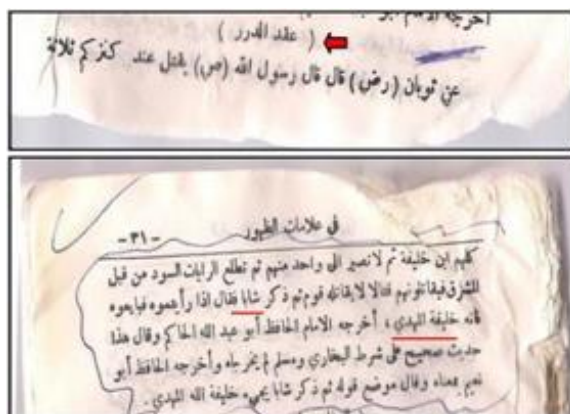 أخرجه الامام
( عقد الدرر )
عن ثوبان (رض) قال قال رسول الله (ص) يقتل عند كنزكم ثلاثة
في علامات الظهور - ٣١ -
كلهم ابن خليفة ثم لا تصير الى واحد منهم ثم تطلع الرايات السود من قبل
المشرق فيقاتلونهم قتالا لا يقاتله قوم ثم ذكر شابا فقال اذا رأيتموه فبايعوه
فانه خليفة المهدي ، أخرجه الامام الحافظ أبو عبد الله الحاكم وقال هذا
حديث صحيح على شرط البخاري ومسلم لم يخرجاه وأخرجه الحافظ أبو
نعيم بمعناه وقال موضع قوله ثم ذكر شابا يجيء خليفة الله المهدي .